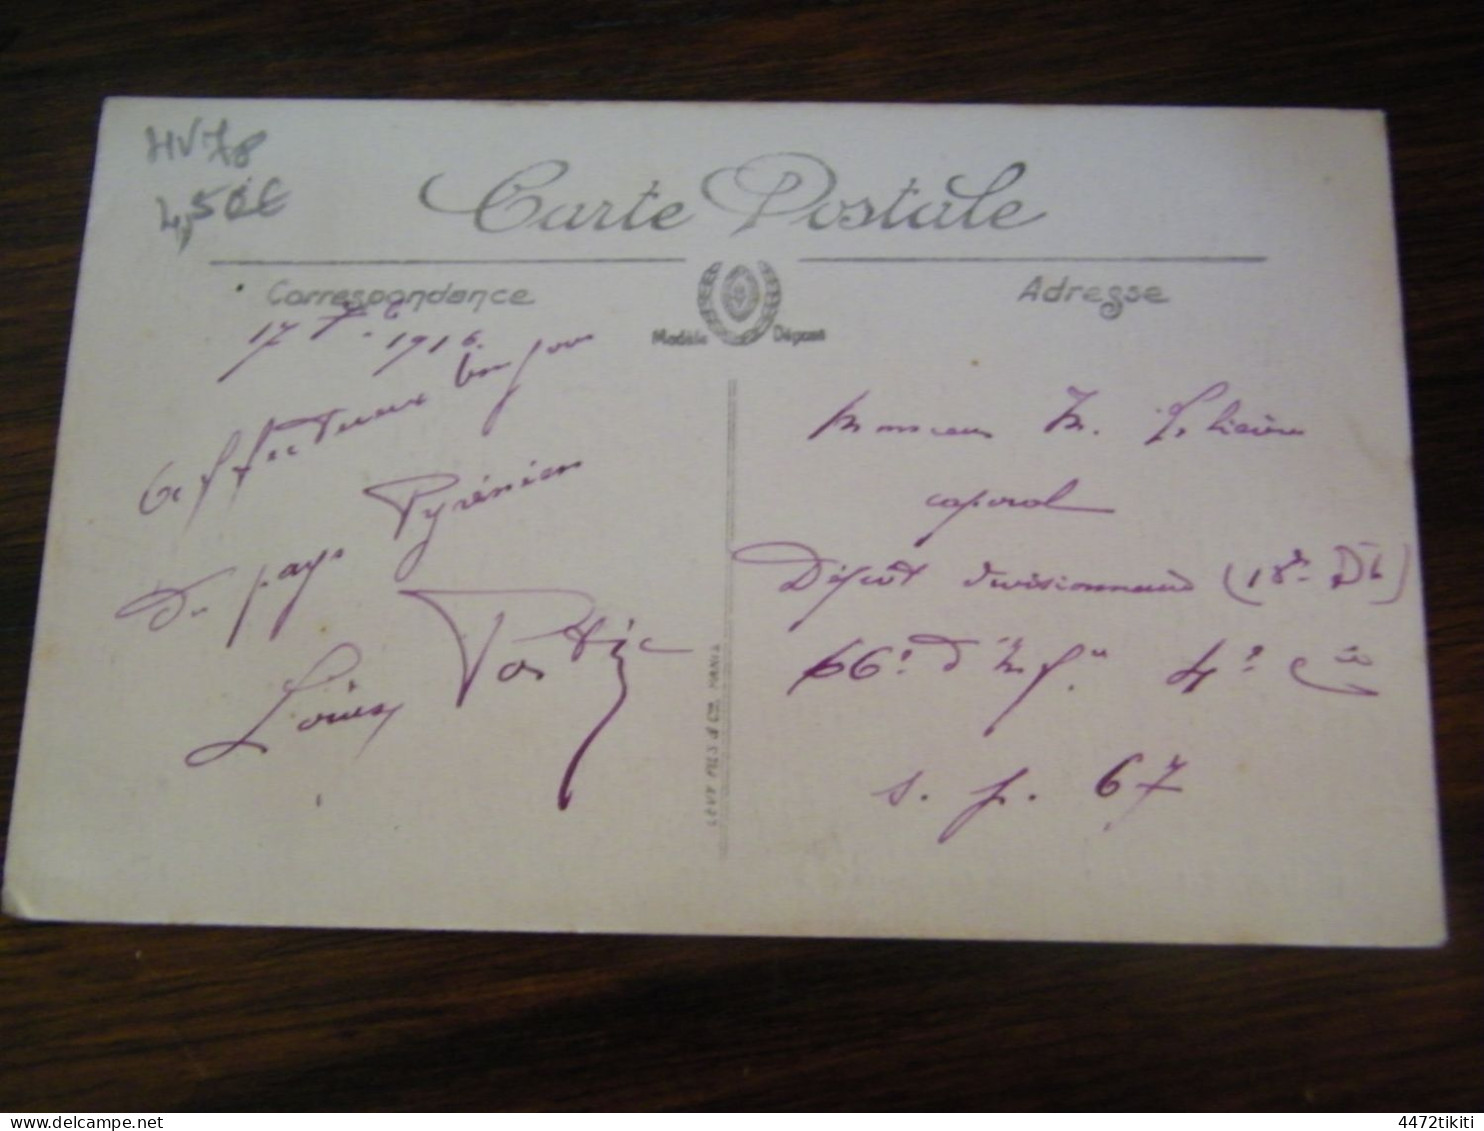 HV78
4,50€
Carte Postale
Correspondance
Adresse
Modèle Déposé
1916.
affectueux bonjour
du pays Pyrénéen
Louis
Monsieur M.
caporal
Dépôt divisionnaire (18e DI)
66e d'Inf. 4e Cie
s. p. 67
LEVY FILS & Cie, PARIS
delcampe.net
4472tikiti